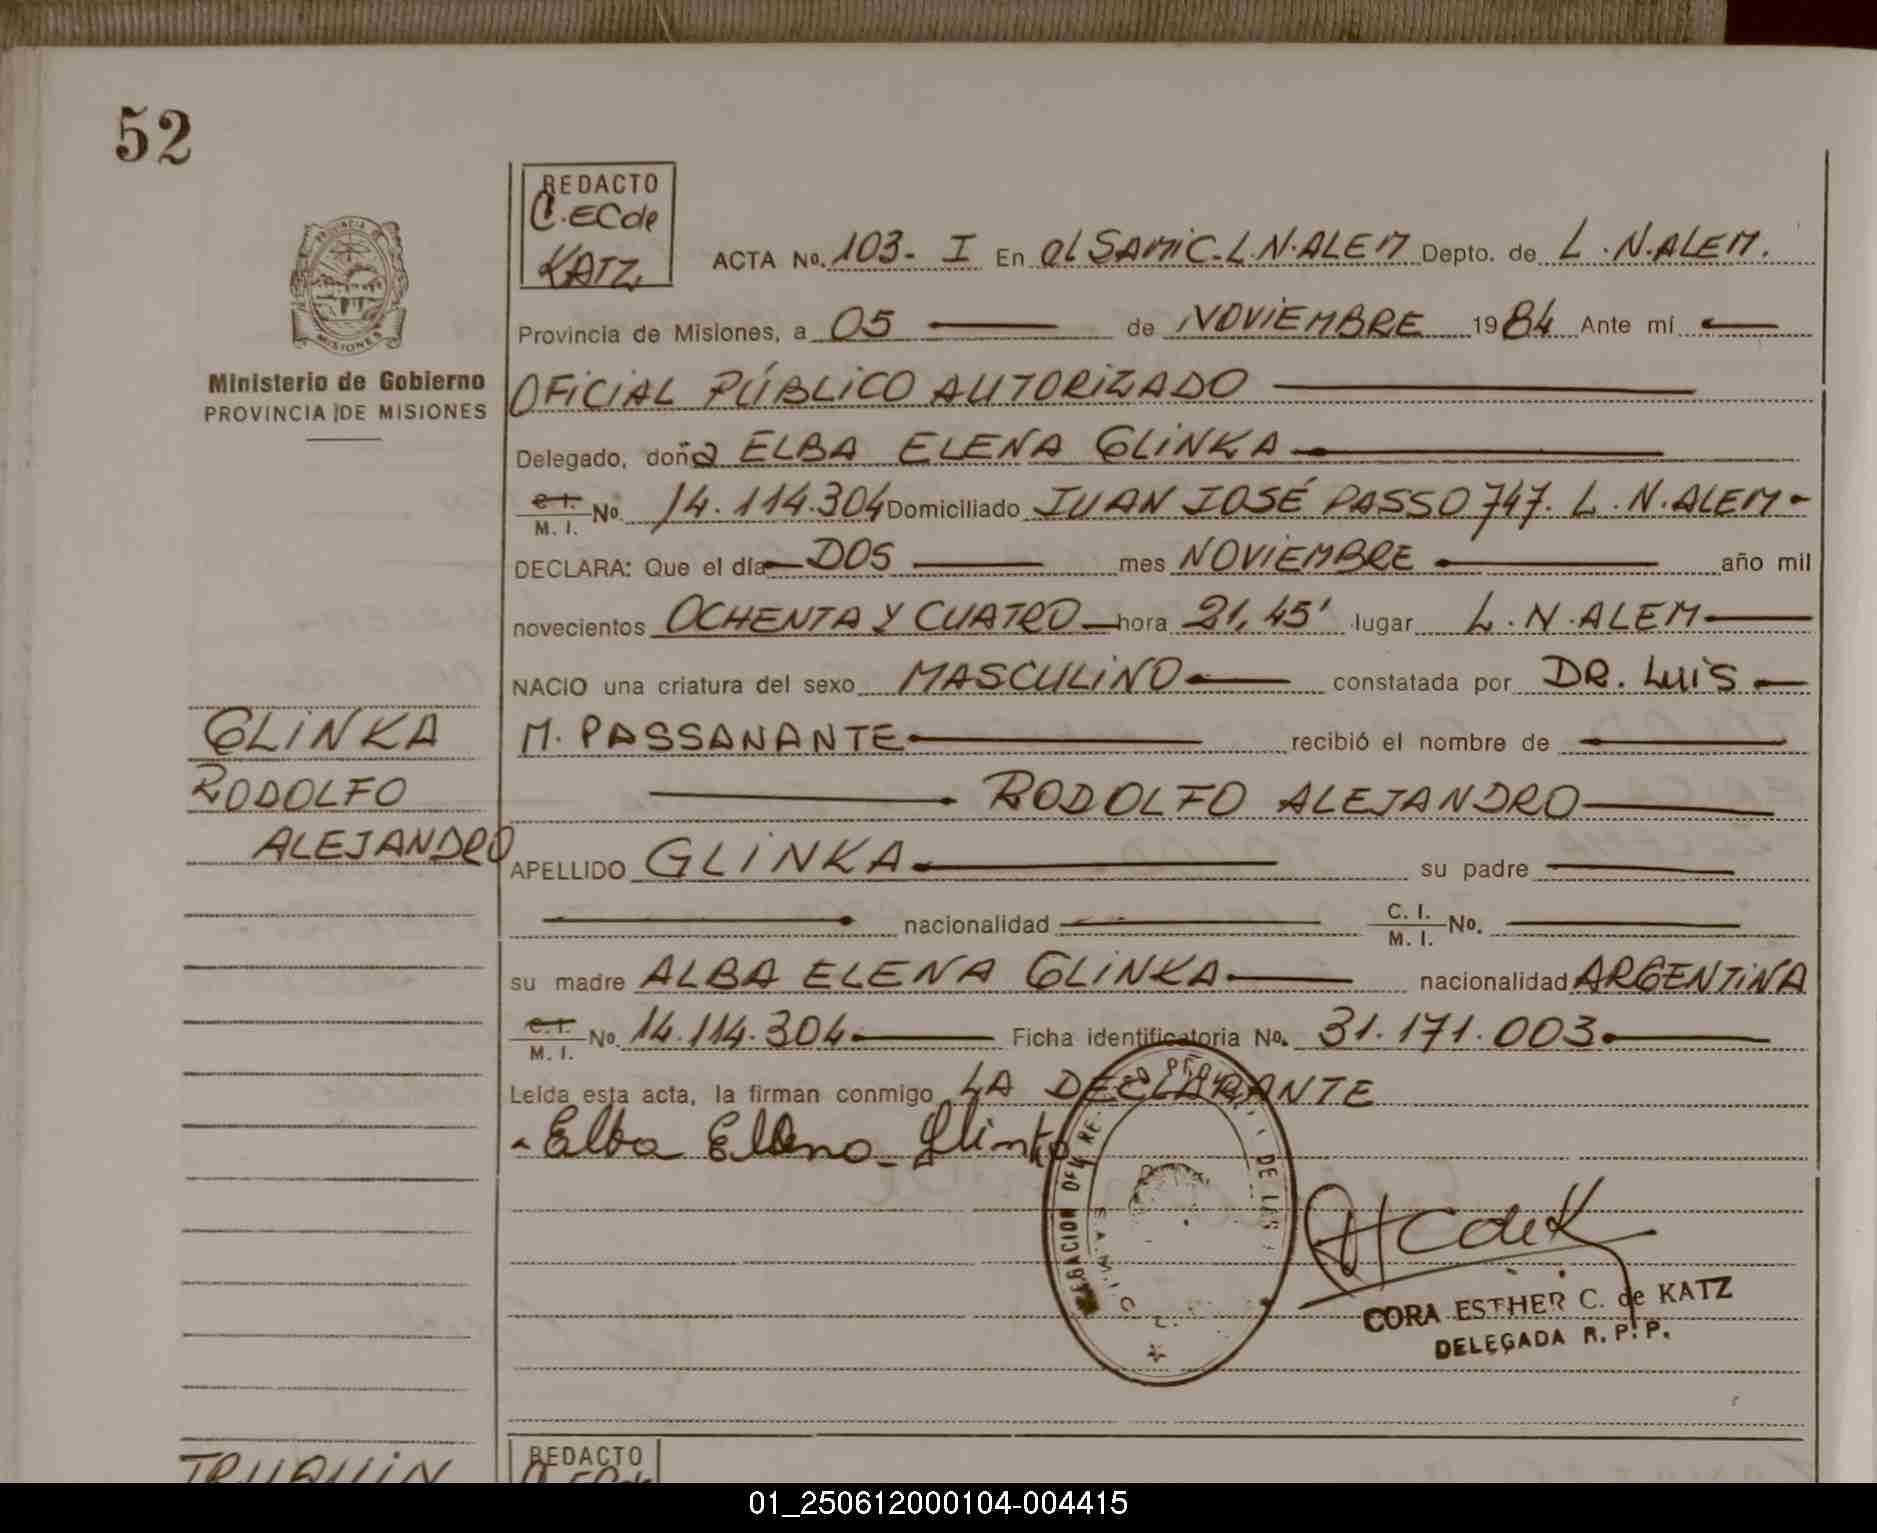 52
REDACTO
C.ECde
KATZ
PROVINCIA DE
MISIONES
Ministerio de Gobierno
PROVINCIA DE MISIONES
ACTA No. 103- I En el SAMIC-L.N.ALEM Depto. de L.N.ALEM.
Provincia de Misiones, a 05 de NOVIEMBRE 1984 Ante mí
OFICIAL PÚBLICO AUTORIZADO
Delegado, doña ELBA ELENA GLINKA
C.I. M. I. No. 14.114.304 Domiciliado JUAN JOSÉ PASSO 747. L.N.ALEM-
DECLARA: Que el día DOS mes NOVIEMBRE año mil
novecientos OCHENTA Y CUATRO hora 21,45' lugar L.N.ALEM
NACIO una criatura del sexo MASCULINO constatada por DR. LUIS
M. PASSANANTE recibió el nombre de
RODOLFO ALEJANDRO
APELLIDO GLINKA su padre
nacionalidad C. I. M. I. No.
su madre ALBA ELENA GLINKA nacionalidad ARGENTINA
C.I. M. I. No. 14.114.304 Ficha identificatoria No. 31.171.003
Leída esta acta, la firman conmigo LA DECLARANTE
Elba Elena Glinka
GLINKA
RODOLFO
ALEJANDRO
DE LAS
CORA ESTHER C. de KATZ
DELEGADA R. P. P.
REDACTO
01_250612000104-004415